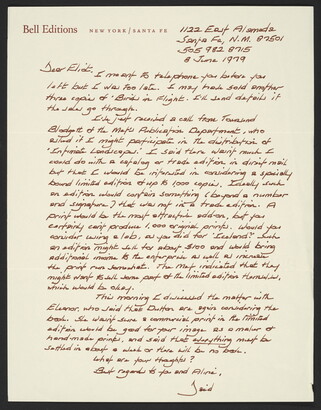 Bell Editions NEW YORK / SANTA FE
1122 East Alameda
Santa Fe, N.M. 87501
505 982 8715
8 June 1979
Dear Eliot,
I meant to telephone you before you
left but I was too late. I may have sold another
three copies of Birds in Flight. I'll send details if
the sales go through.
I've just received a call from Townsend
Blodgett of the Met's Publication Department, who
asked if I might participate in the distribution of
"Intimate Landscapes." I said there wasn't much I
could do with a catalog or trade edition in direct mail
but that I would be interested in considering a specially
bound limited edition of up to 1000 copies. Ideally such
an edition would contain something (beyond a number
and signature) that was not in a trade edition. A
print would be the most attractive add-on, but you
certainly can't produce 1,000 original prints. Would you
consider using a repro, as you did for Iceland? Such
an edition might sell for about $100 and would bring
additional monies to the enterprise as well as increase
the print run somewhat. The Met indicated that they
might want to sell some part of the limited edition themselves,
which would be okay.
This morning I discussed the matter with
Eleanor, who said that Dutton are again considering the
book. She wasn't sure a commercial print in the limited
edition would be good for your image as a maker of
hand-made prints, and said that everything must be
settled in about a week or there will be no book.
What are your thoughts?
Best regards to you and Aline,